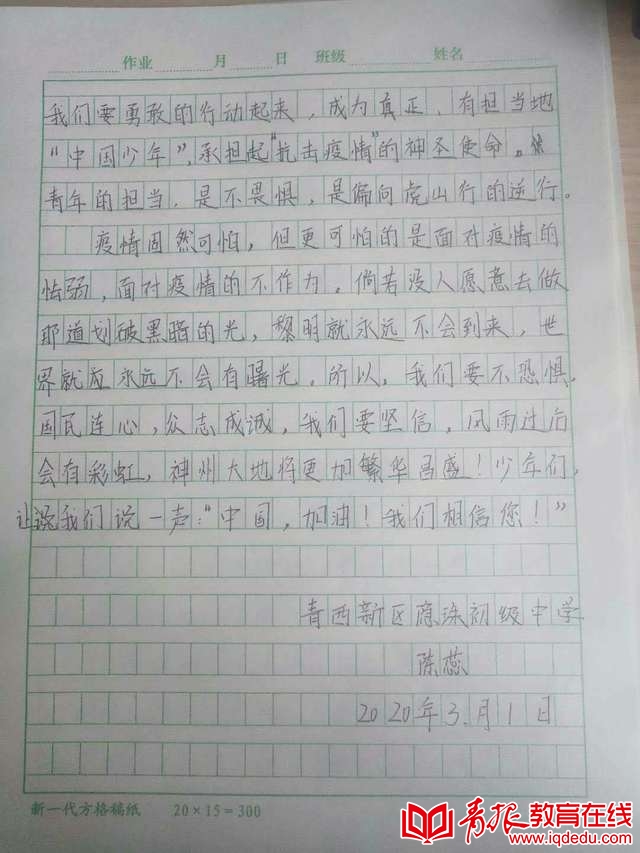 作业 月 日 班级 姓名
我们要勇敢的行动起来，成为真正、有担当地
“中国少年”，承担起“抗击疫情”的神圣使命。
青年的担当，是不畏惧，是偏向虎山行的逆行。
疫情固然可怕，但更可怕的是面对疫情的
怯弱，面对疫情的不作为，倘若没人愿意去做
那道划破黑暗的光，黎明就永远不会到来，世
界就应永远不会有曙光。所以，我们要不恐惧，
国民连心，众志成诚，我们要坚信，风雨过后
会有彩虹，神州大地将更加繁华昌盛！少年们，
让我们说一声：“中国，加油！我们相信您！”
青西新区 初级中学
陈蕊
2020年3.月1日
新一代方格稿纸 20×15=300
青报教育在线
www.iqdedu.com